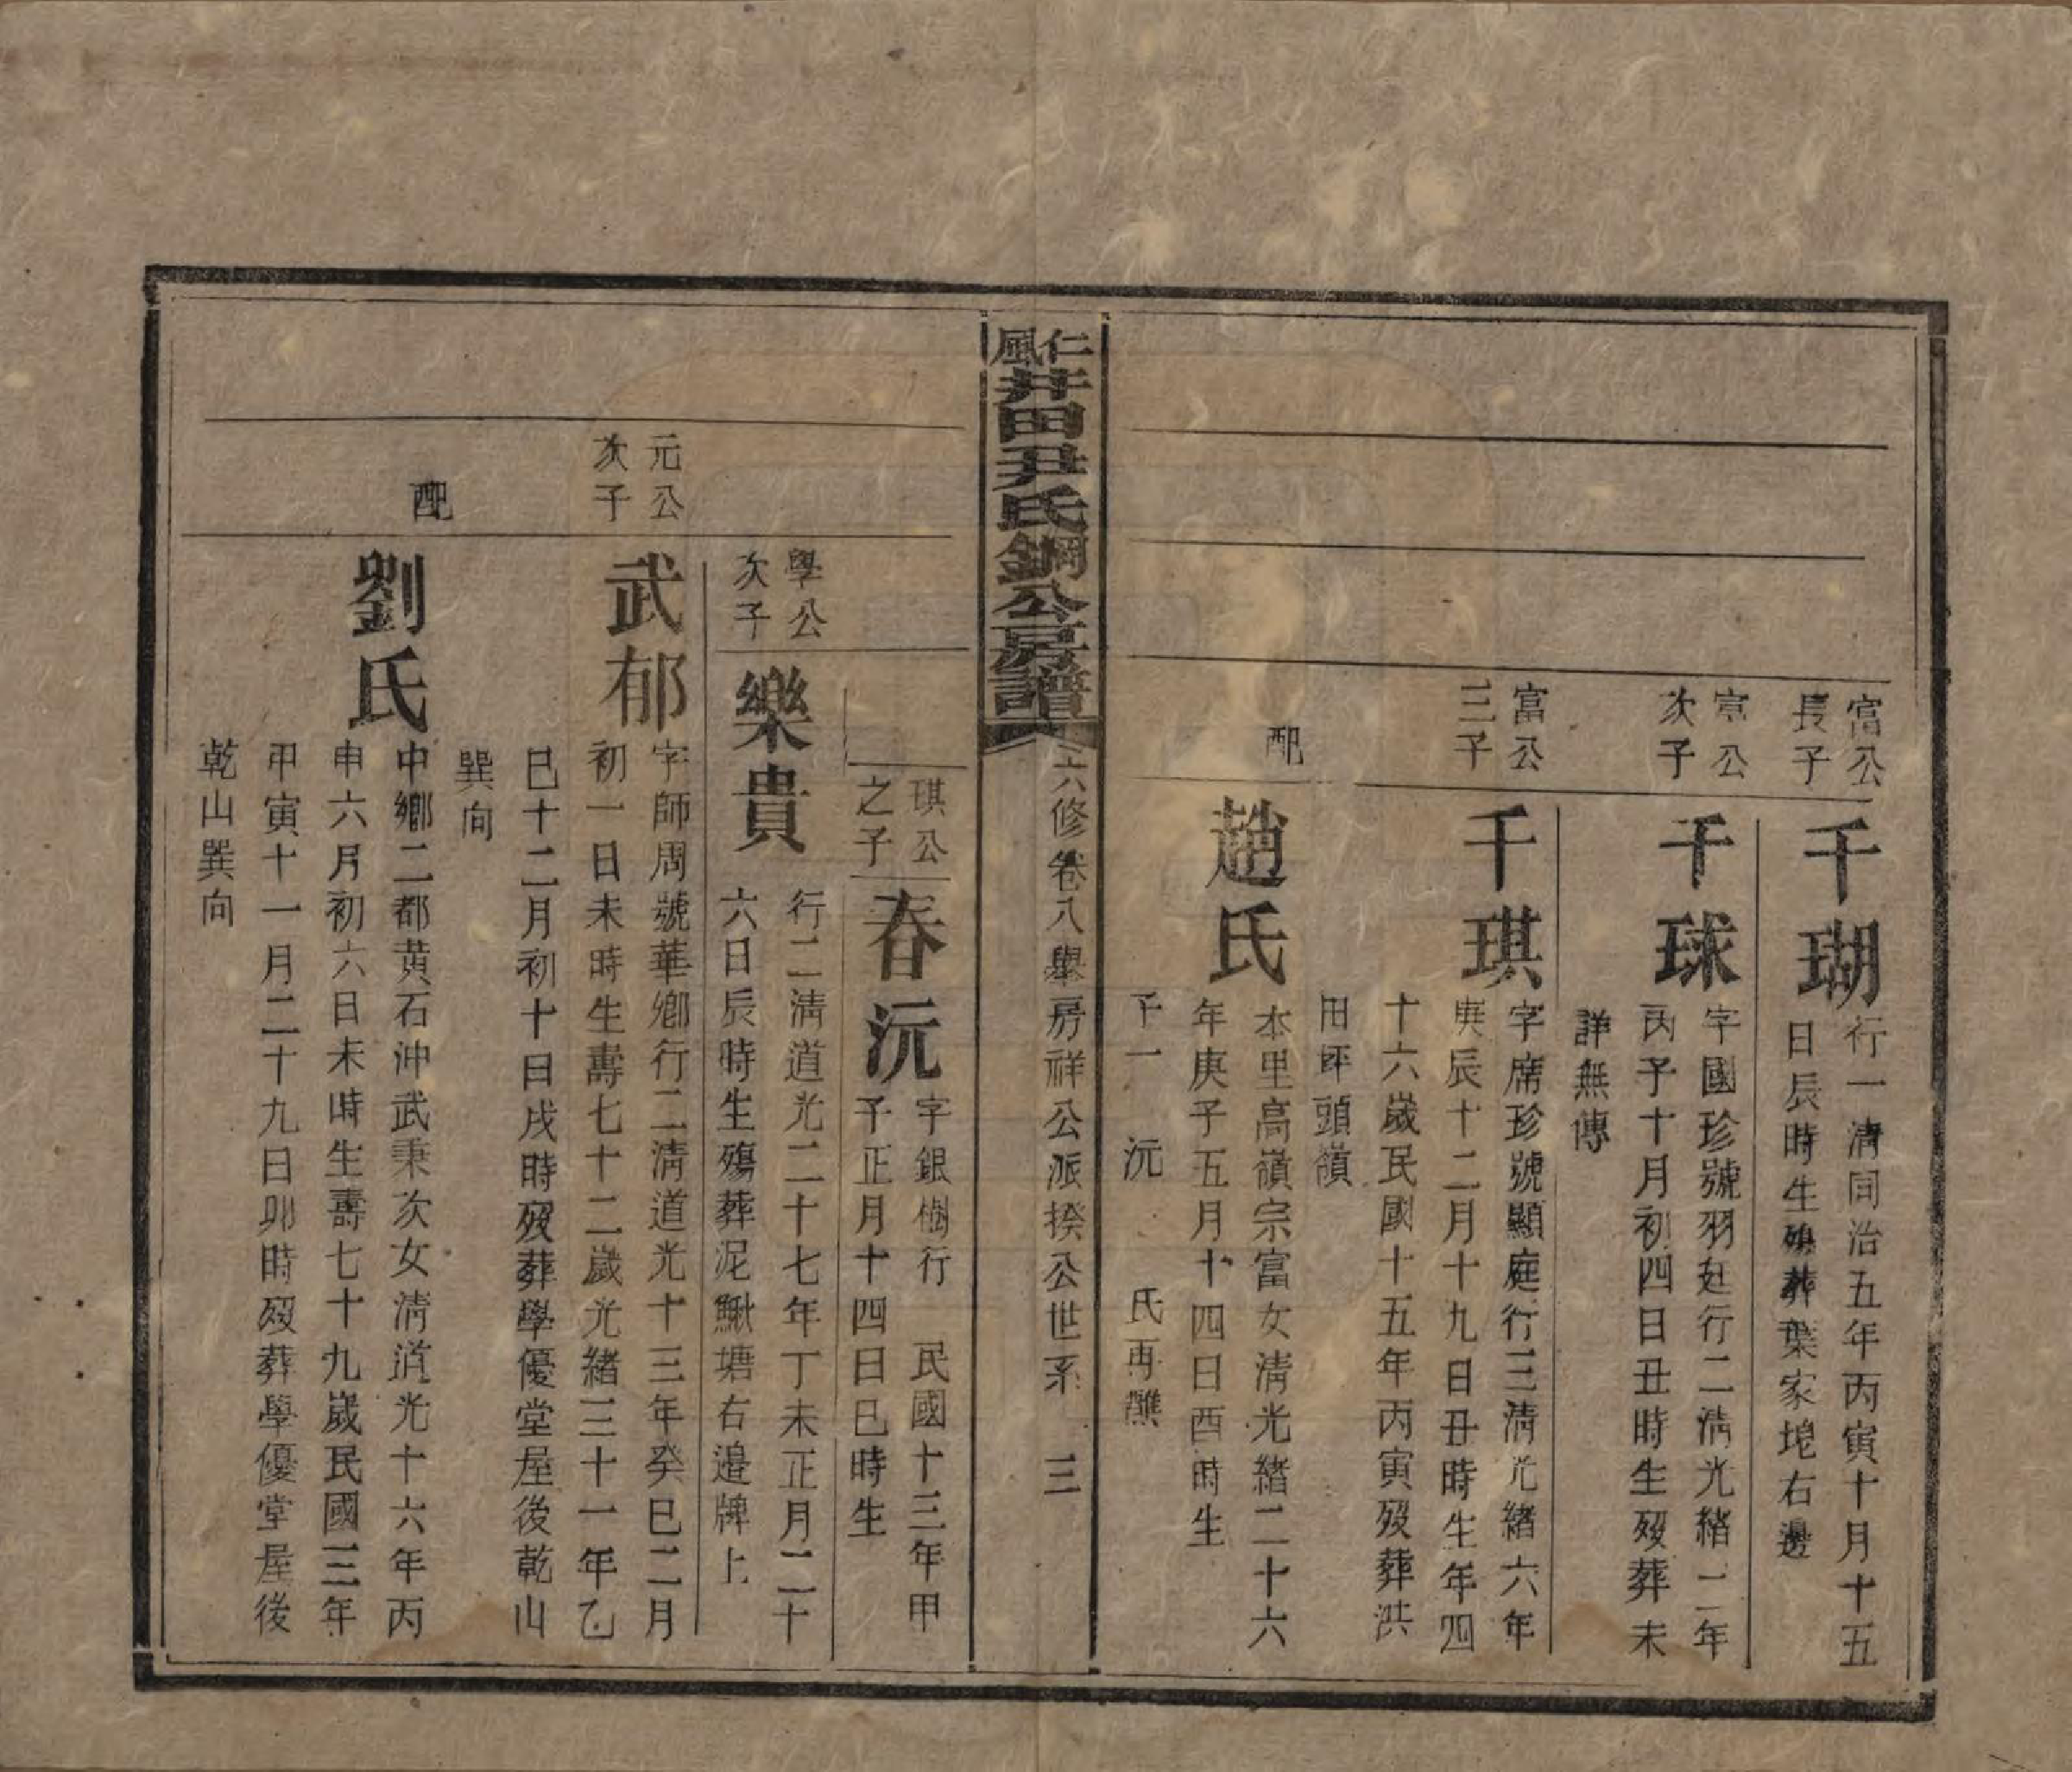 富公
長子
千瑚
行一清同治五年丙寅十月十五
日辰時生殤葬葉家垞右邊
富公
次子
千球
字國珍號羽廷行二清光緒二年
丙子十月初四日丑時生歿葬未
詳無傳
富公
三子
千琪
字席珍號顯庭行三清光緒六年
庚辰十二月十九日丑時生年四
十六歲民國十五年丙寅歿葬洪
田坪頭嶺
配
趙氏
本里高嶺宗富女清光緒二十六
年庚子五月十四日酉時生
子一 沅 氏再醮
仁風井田尹氏鋼公房譜
六修卷八舉房祥公派揆公世系 三
琪公
之子
春沅
字銀樹行 民國十三年甲
子正月十四日巳時生
學公
次子
樂貴
行二清道光二十七年丁未正月二十
六日辰時生殤葬泥鰍塘右邉牌上
元公
次子
武郁
字師周號華鄉行二清道光十三年癸巳二月
初一日未時生壽七十二歲光緒三十一年乙
巳十二月初十日戌時歿葬學優堂屋後乾山
巽向
配
劉氏
中鄉二都黄石沖武秉次女清道光十六年丙
申六月初六日未時生壽七十九歲民國三年
甲寅十一月二十九日卯時歿葬學優堂屋後
乾山巽向